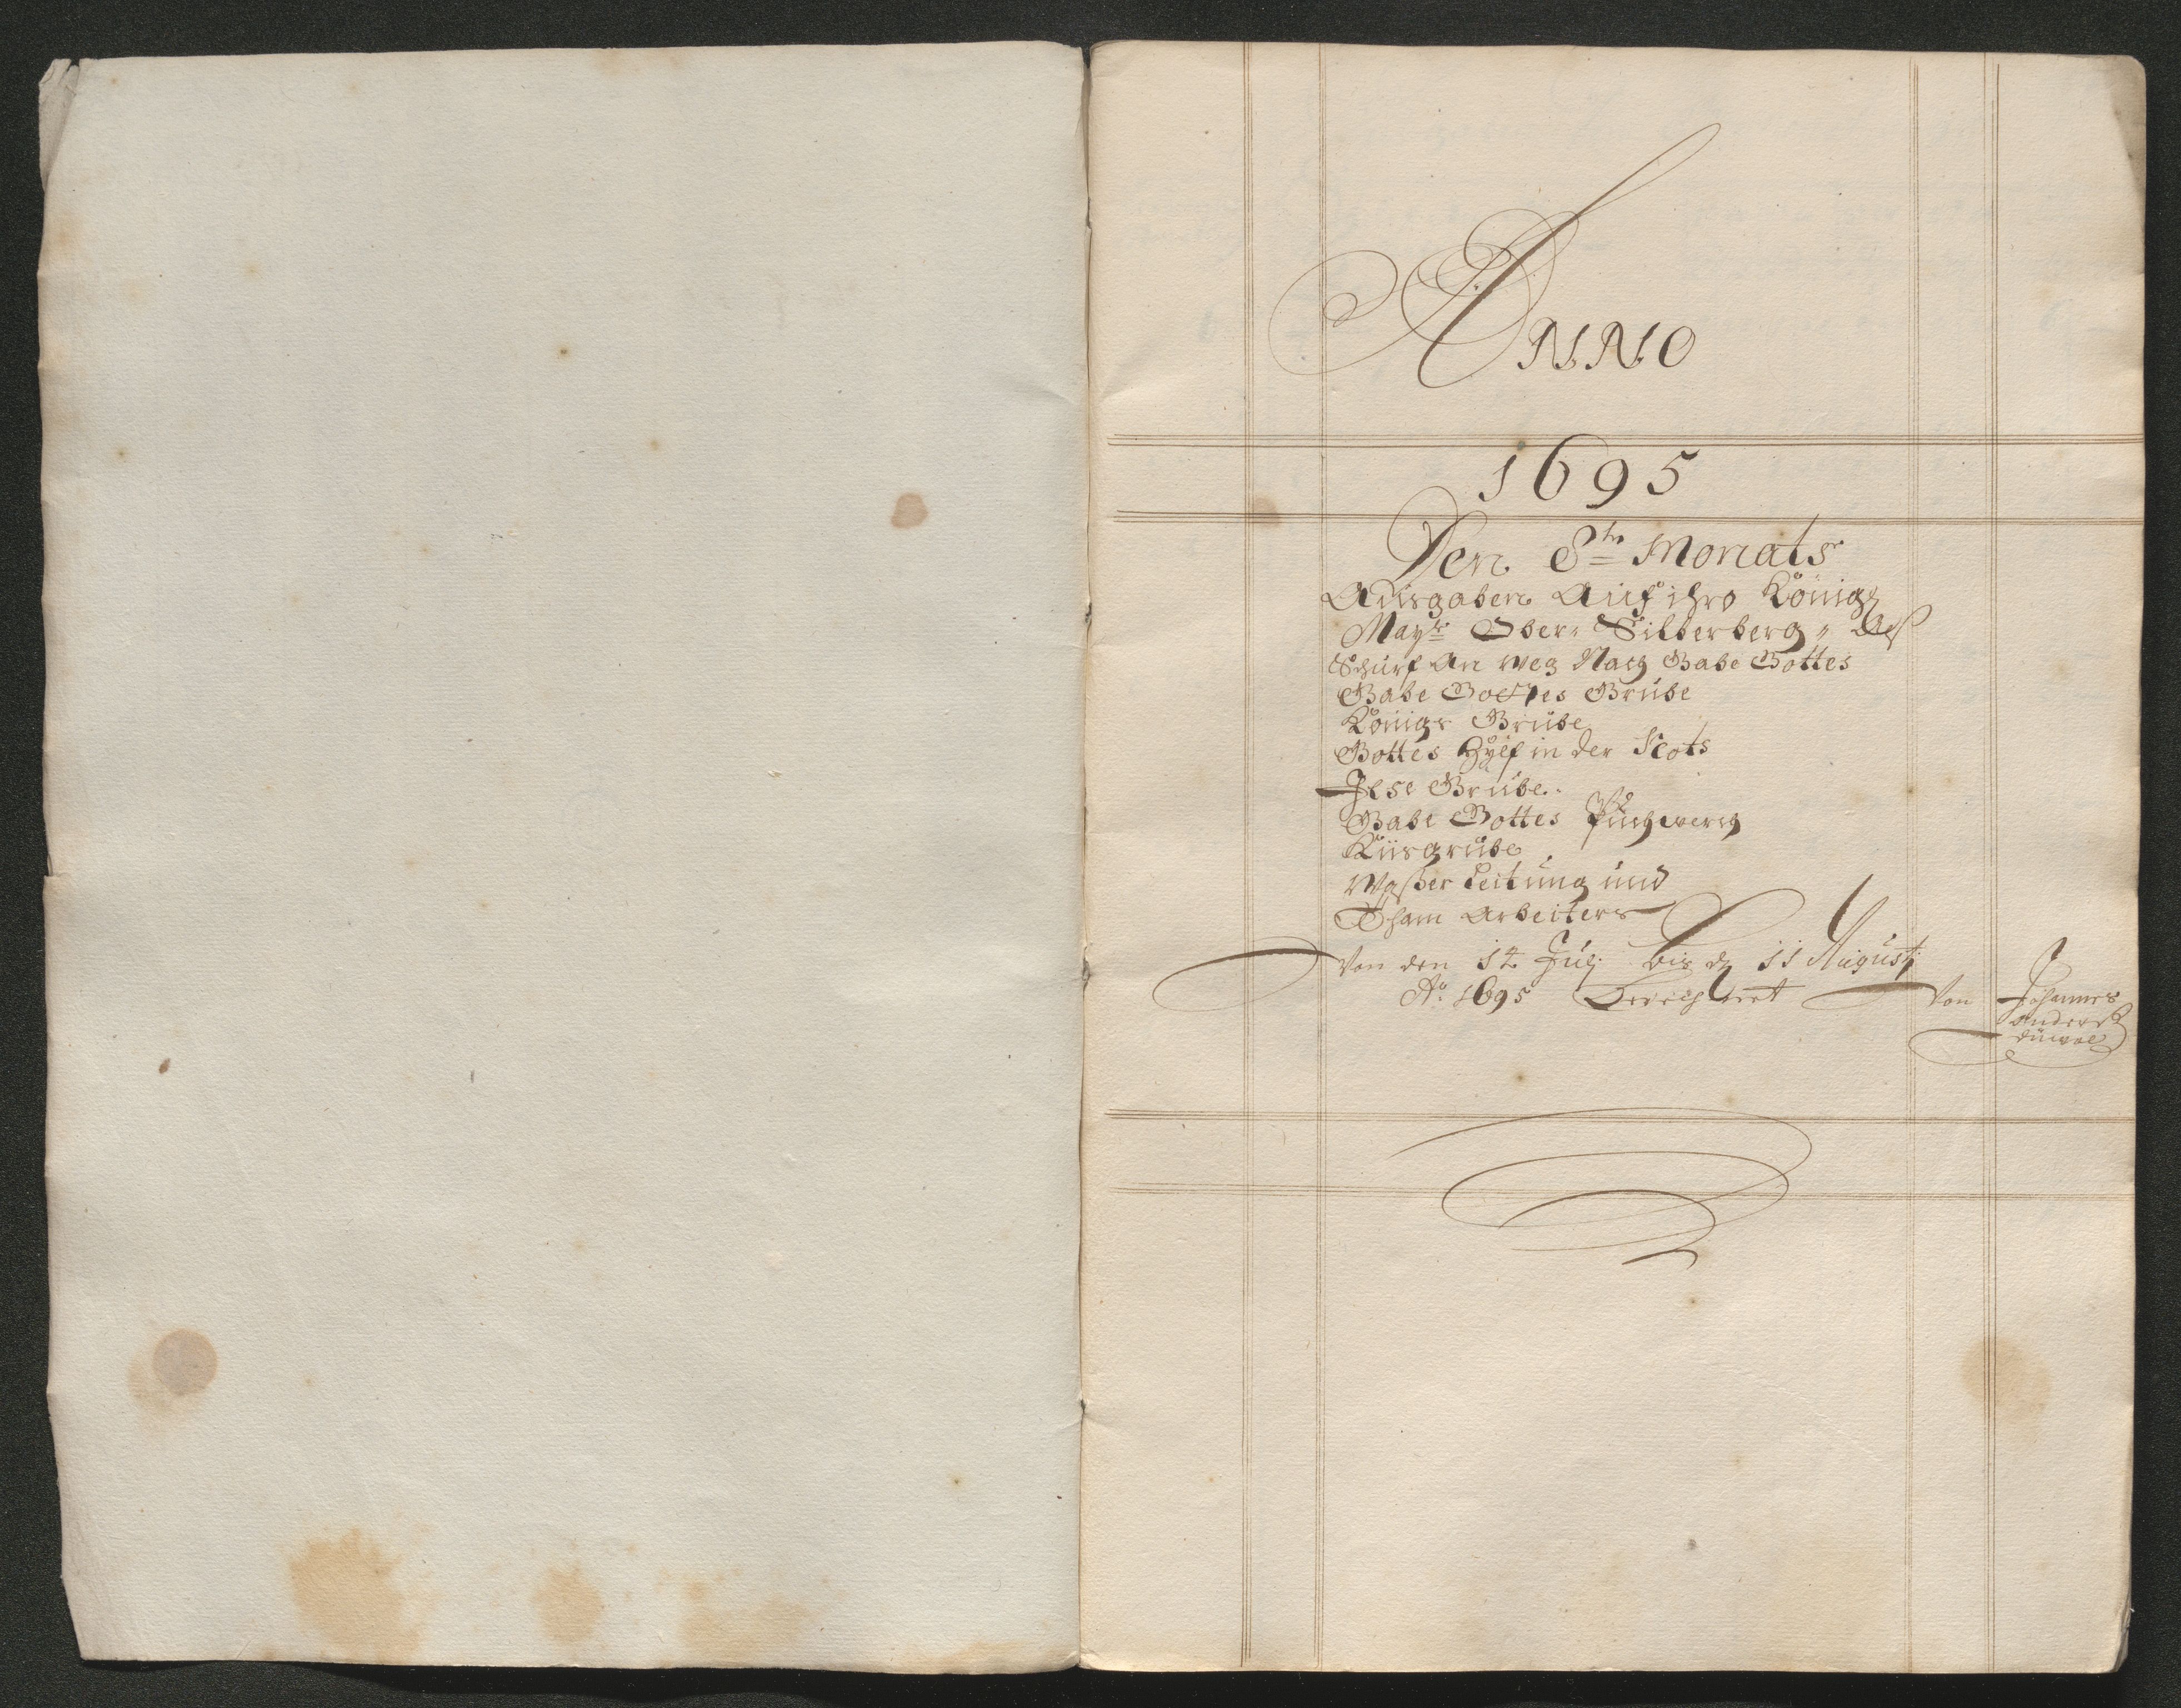 ANNO
1695
Den 8tn Monats
Ausgaben Auf ihro Königl
Maytt Ober Silberberg
Schürf An weg Nach Gabe Gottes
Gabe Gottes Grübe
Königs Grübe
Gottes Hylf in der Scots
Ilse Grübe
Gabe Gottes Püchwerch
Kiisgrübe
Waßer Leitung und
Tham Arbeiters
Von den 14 Julj bis d 11 Augustj
Ao 1695 Berechnet Von Johannes
Anders